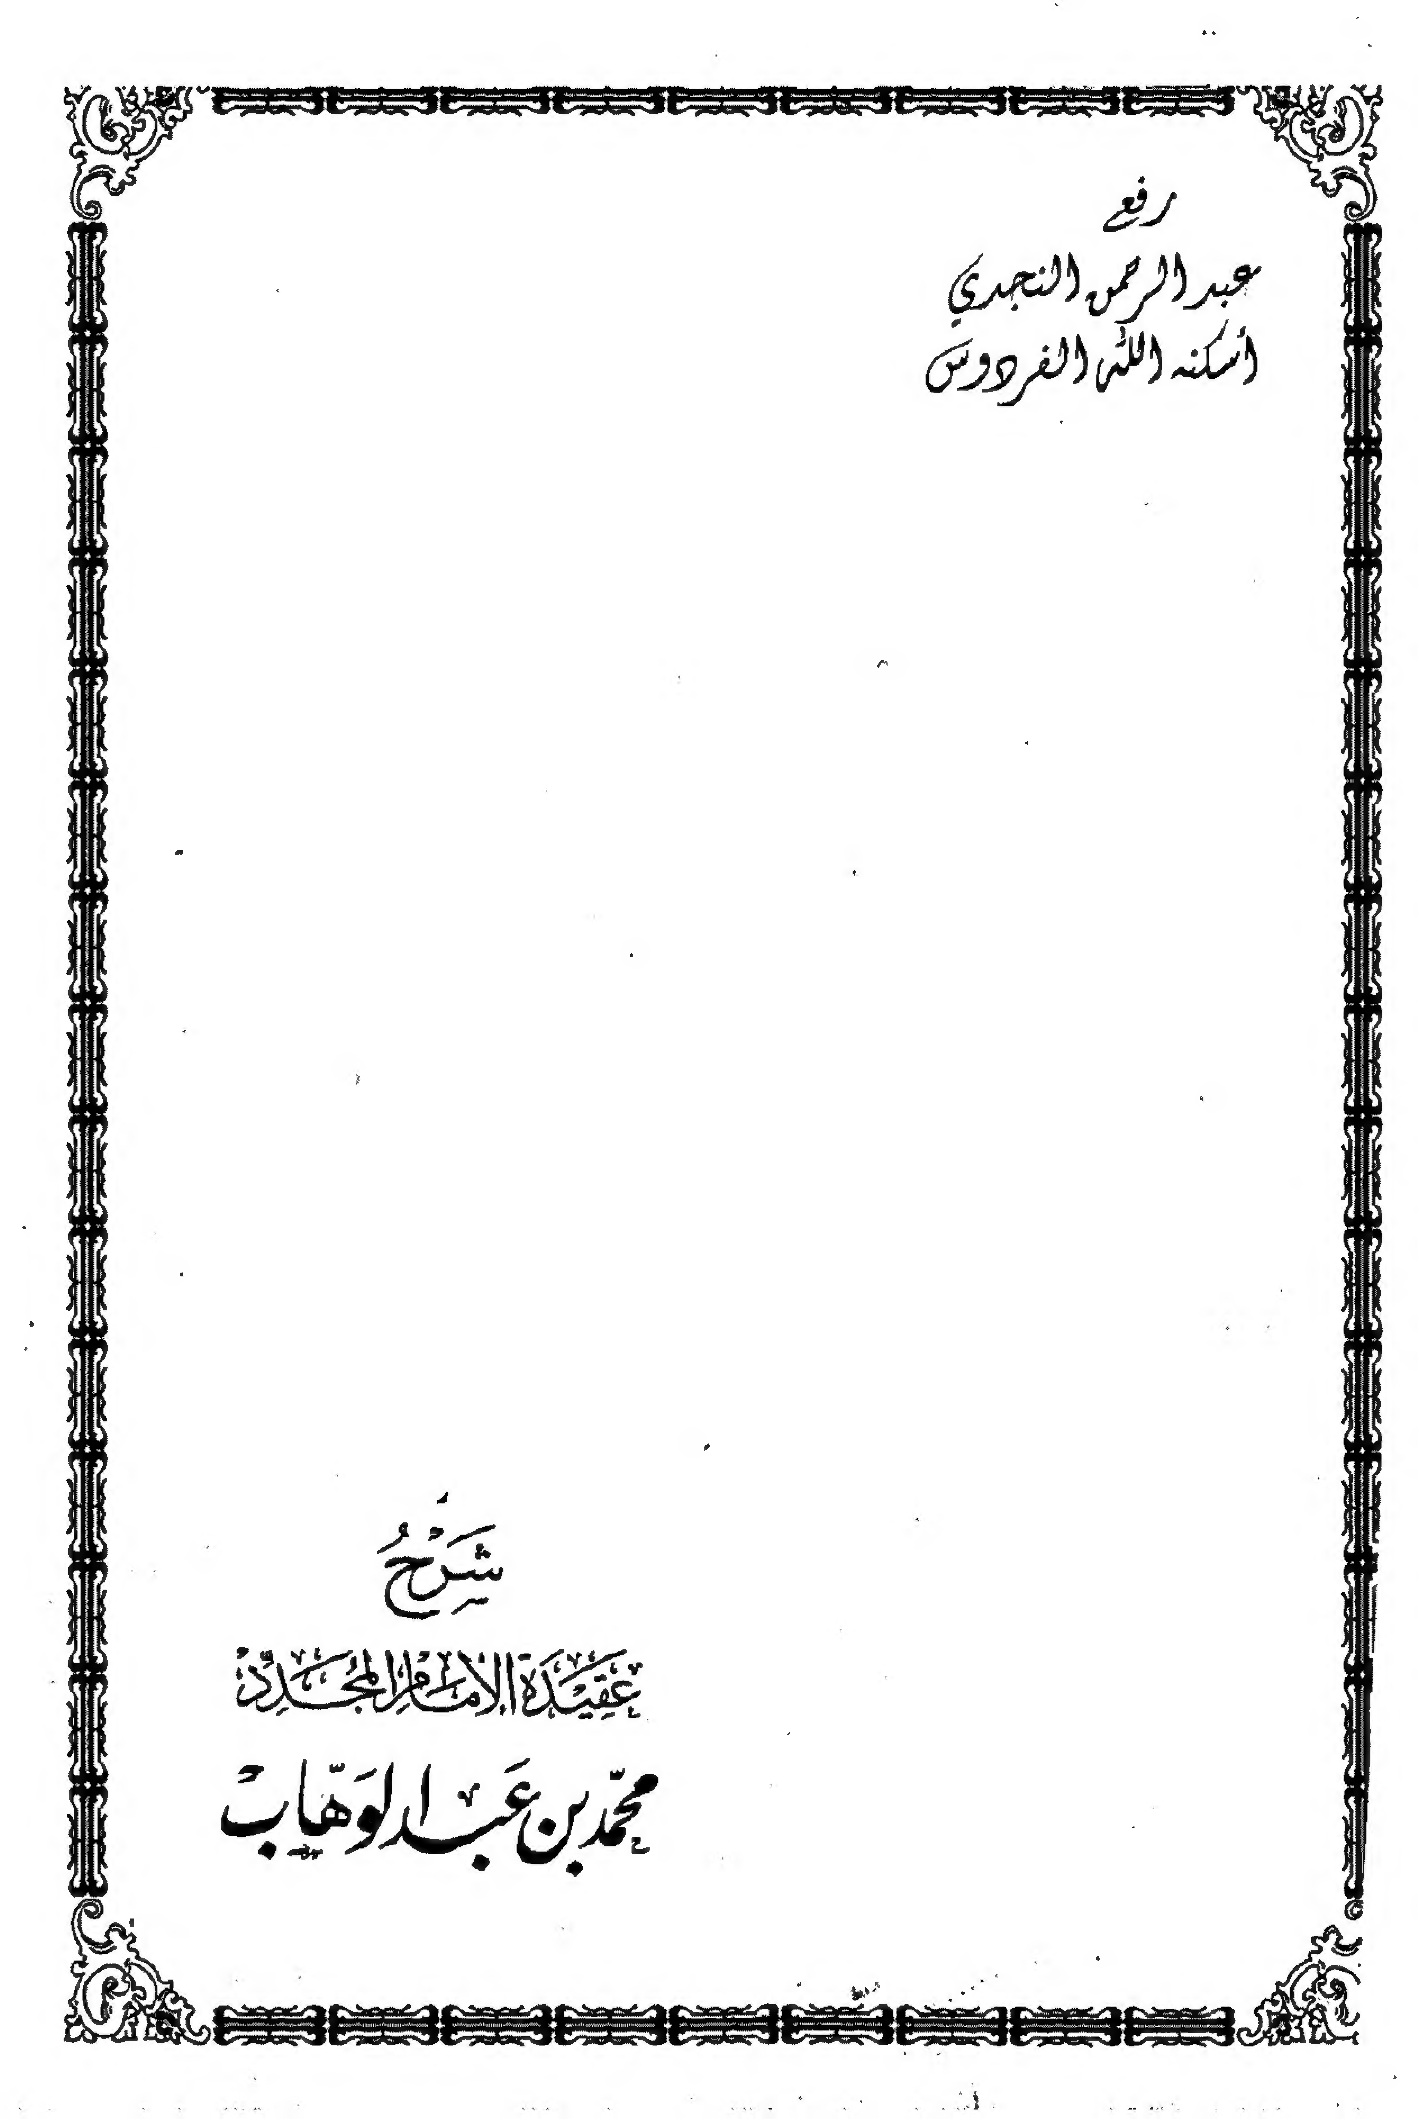 رفع
عبد الرحمن النجدي
أسكنه الله الفردوس
شَرْحُ
عَقِيْدَةِ الإِمَامِ المُجَدِّدِ
محمّد بن عَبد الوَهّاب